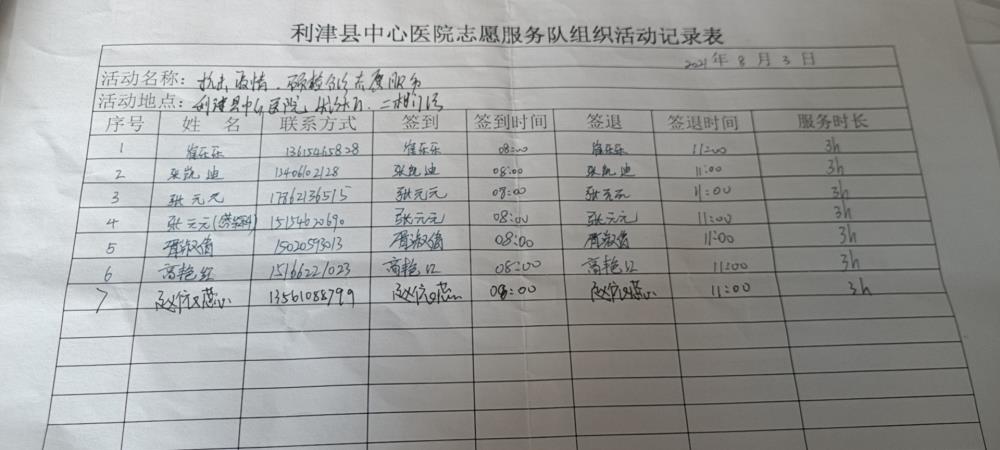 利津县中心医院志愿服务队组织活动记录表
2021年8月3日
活动名称：抗击疫情、预检分诊志愿服务
活动地点：利津县中心医院
序号 姓名 联系方式 签到 签到时间 签退 签退时间 服务时长
1 崔乐乐 13615465828 崔乐乐 08:00 崔乐乐 11:00 3h
2 张凯迪 13406102128 张凯迪 08:00 张凯迪 11:00 3h
3 张元元 17862136515 张元元 08:00 张元元 11:00 3h
4 张元元 15154620690 张元元 08:00 张元元 11:00 3h
5 胥淑倩 15020593013 胥淑倩 08:00 胥淑倩 11:00 3h
6 高艳红 15166221023 高艳红 08:00 高艳红 11:00 3h
7 13561088799 08:00 11:00 3h